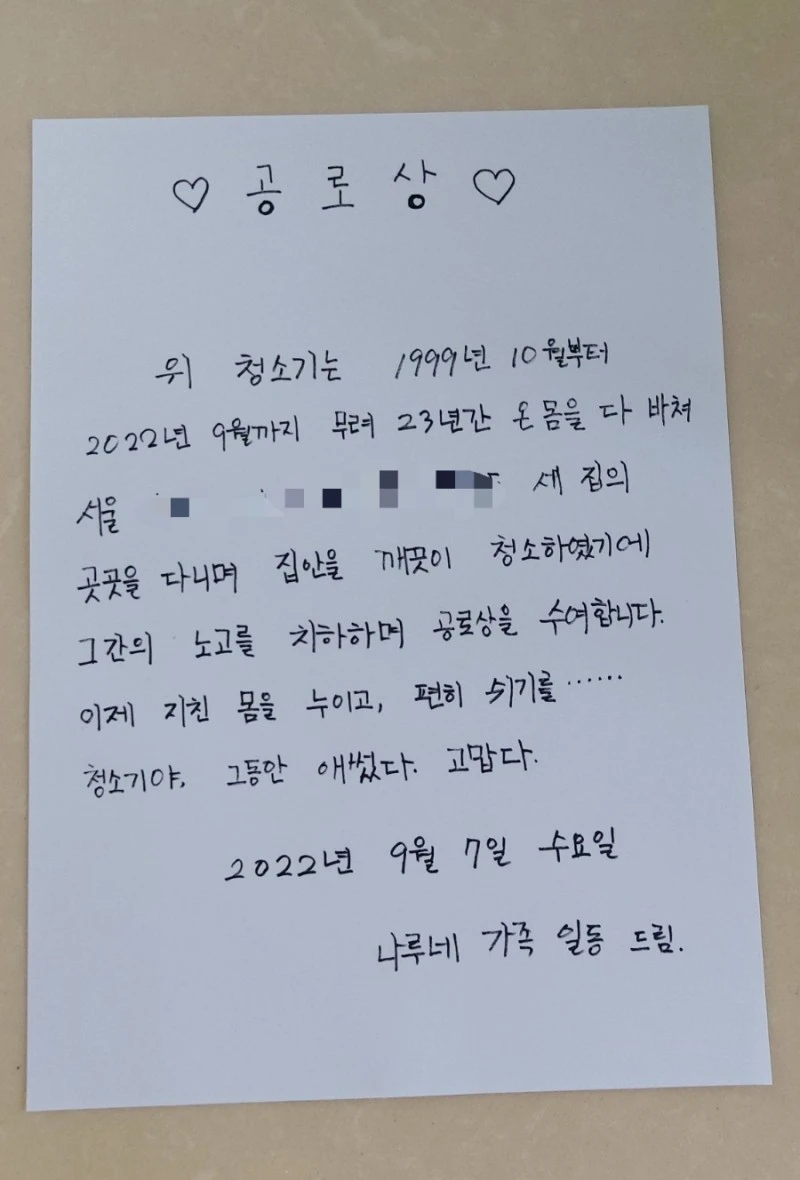 ♡ 공 로 상 ♡
위 청소기는 1999년 10월부터
2022년 9월까지 무려 23년간 온 몸을 다 바쳐
서울 세 집의
곳곳을 다니며 집안을 깨끗이 청소하였기에
그간의 노고를 치하하며 공로상을 수여합니다.
이제 지친 몸을 누이고, 편히 쉬기를……
청소기야, 그동안 애썼다. 고맙다.
2022년 9월 7일 수요일
나루네 가족 일동 드림.